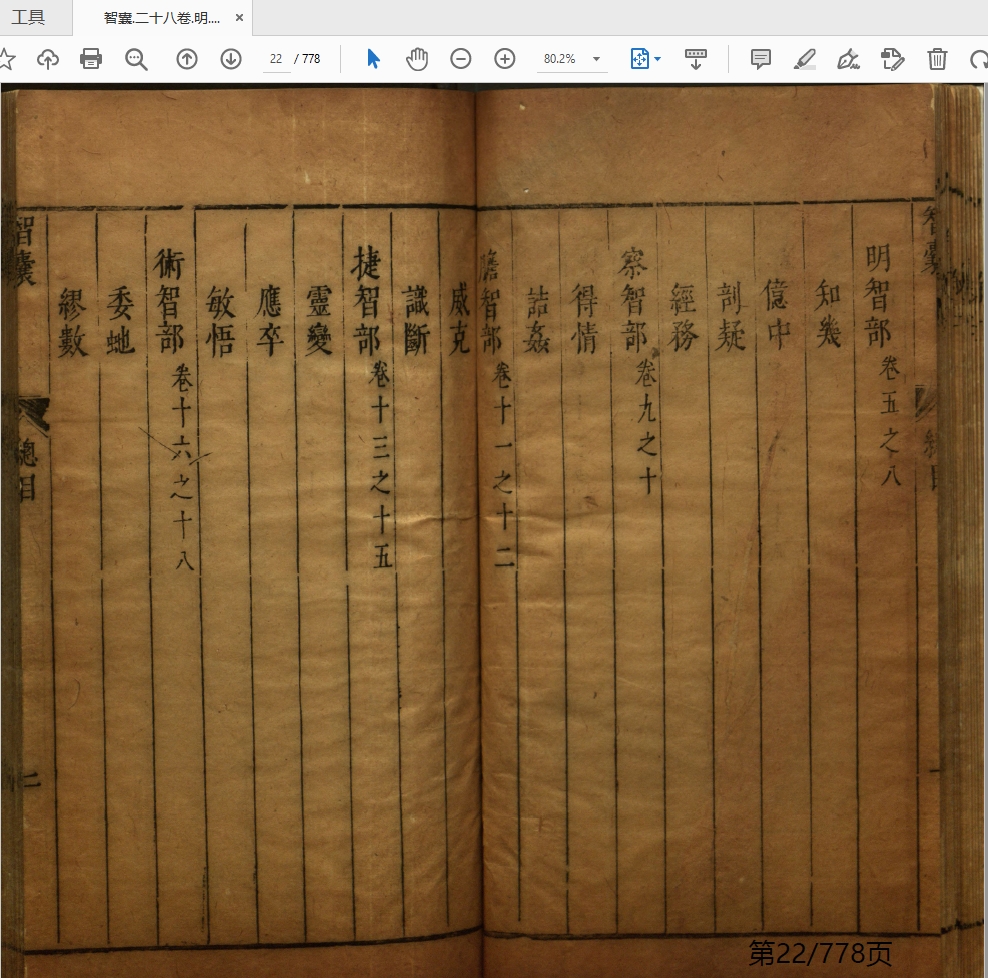 工具
智囊.二十八卷.明....
×
22 / 778
80.2%
智囊
總目
一
明智部 卷五之八
知幾
億中
剖疑
經務
察智部 卷九之十
得情
詰姦
膽智部 卷十一之十二
威克
識斷
捷智部 卷十三之十五
靈變
應卒
敏悟
術智部 卷十六之十八
委虵
繆數
智囊
總目
二
第22/778页